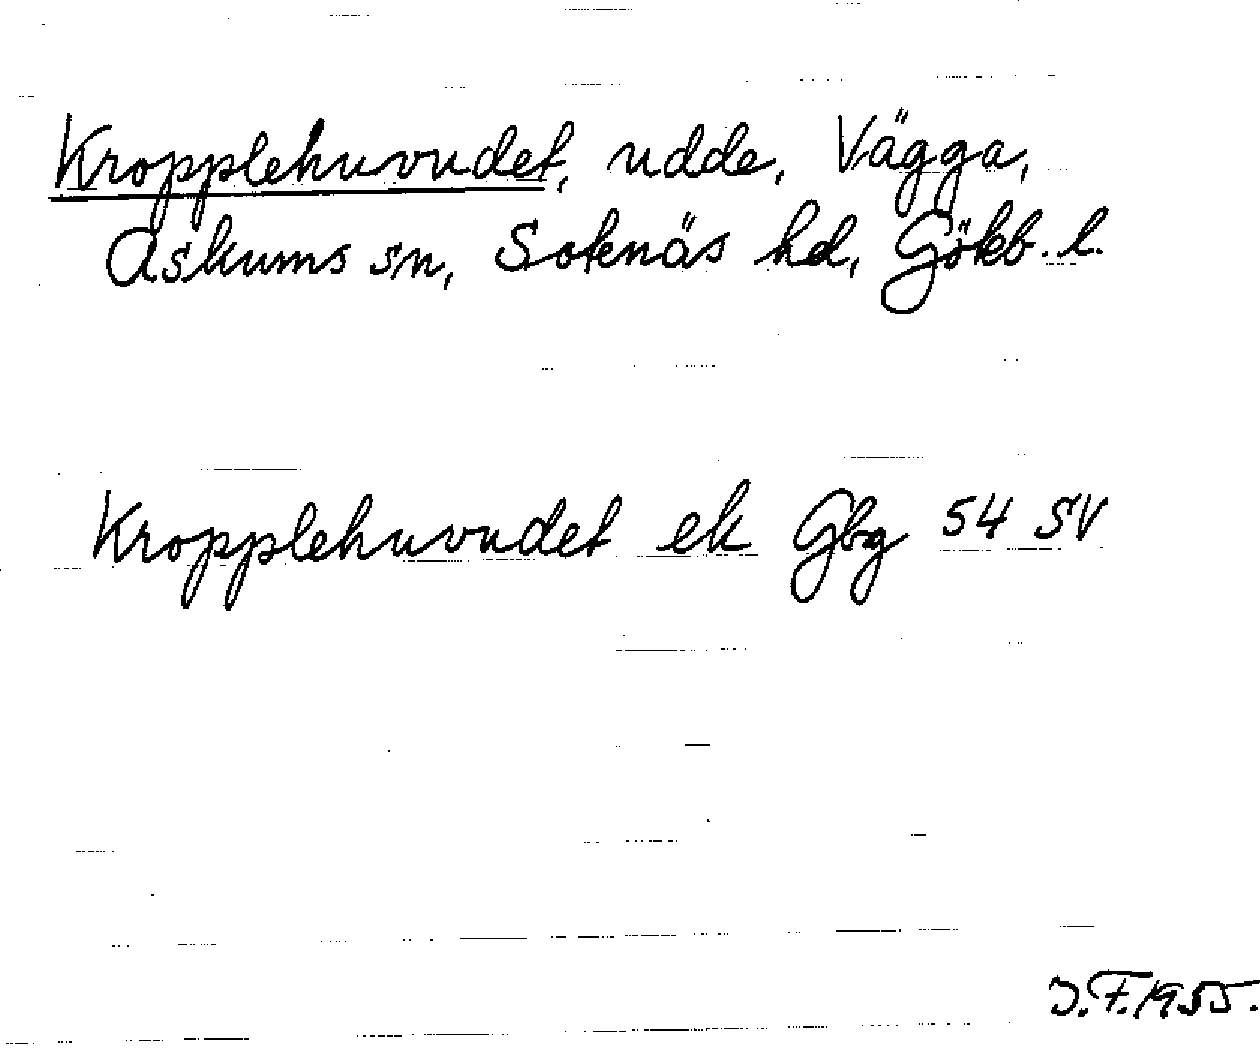 Kropplehuvudet, udde, Vägga,
Askums sn, Sotenäs hd, Gökb. l.
Kropplehuvudet ek Gbg 54 SV
J.F. 1955.